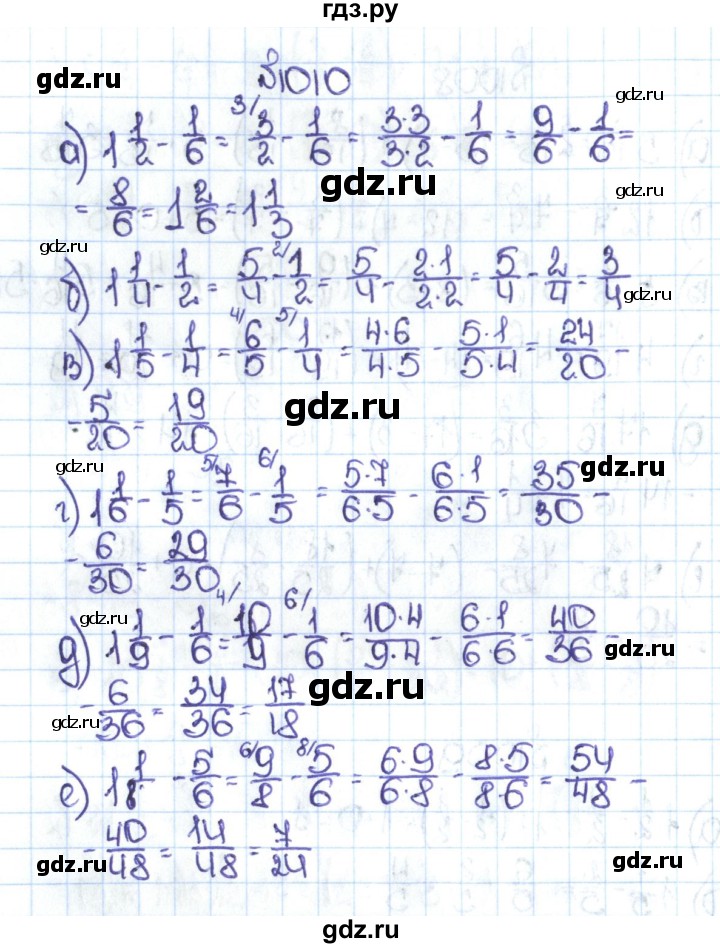 гдз.ру
gdz.ru
№1010
gdz.ru
а) 1 1/2 - 1/6 = ³⁄ 3/2 - 1/6 = 3·3/3·2 - 1/6 = 9/6 - 1/6 =
gdz.ru gdz.ru
= 8/6 = 1 2/6 = 1 1/3
gdz.ru
б) 1 1/4 - 1/2 = 5/4 - ²⁄ 1/2 = 5/4 - 2·1/2·2 = 5/4 - 2/4 = 3/4
gdz.ru
в) 1 1/5 - 1/4 = ⁴⁄ 6/5 - ⁵⁄ 1/4 = 4·6/4·5 - 5·1/5·4 = 24/20 -
gdz.ru
- 5/20 = 19/20
gdz.ru gdz.ru
г) 1 1/6 - 1/5 = ⁵⁄ 7/6 - ⁶⁄ 1/5 = 5·7/6·5 - 6·1/6·5 = 35/30 -
- 6/30 = 29/30
gdz.ru
д) 1 1/9 - 1/6 = ⁴⁄ 10/9 - ⁶⁄ 1/6 = 10·4/9·4 - 6·1/6·6 = 40/36 -
gdz.ru
gdz.ru
- 6/36 = 34/36 = 17/18
gdz.ru
е) 1 1/8 - 5/6 = ⁶⁄ 9/8 - ⁸⁄ 5/6 = 6·9/6·8 - 8·5/8·6 = 54/48 -
- 40/48 = 14/48 = 7/24
gdz.ru gdz.ru
gdz.ru